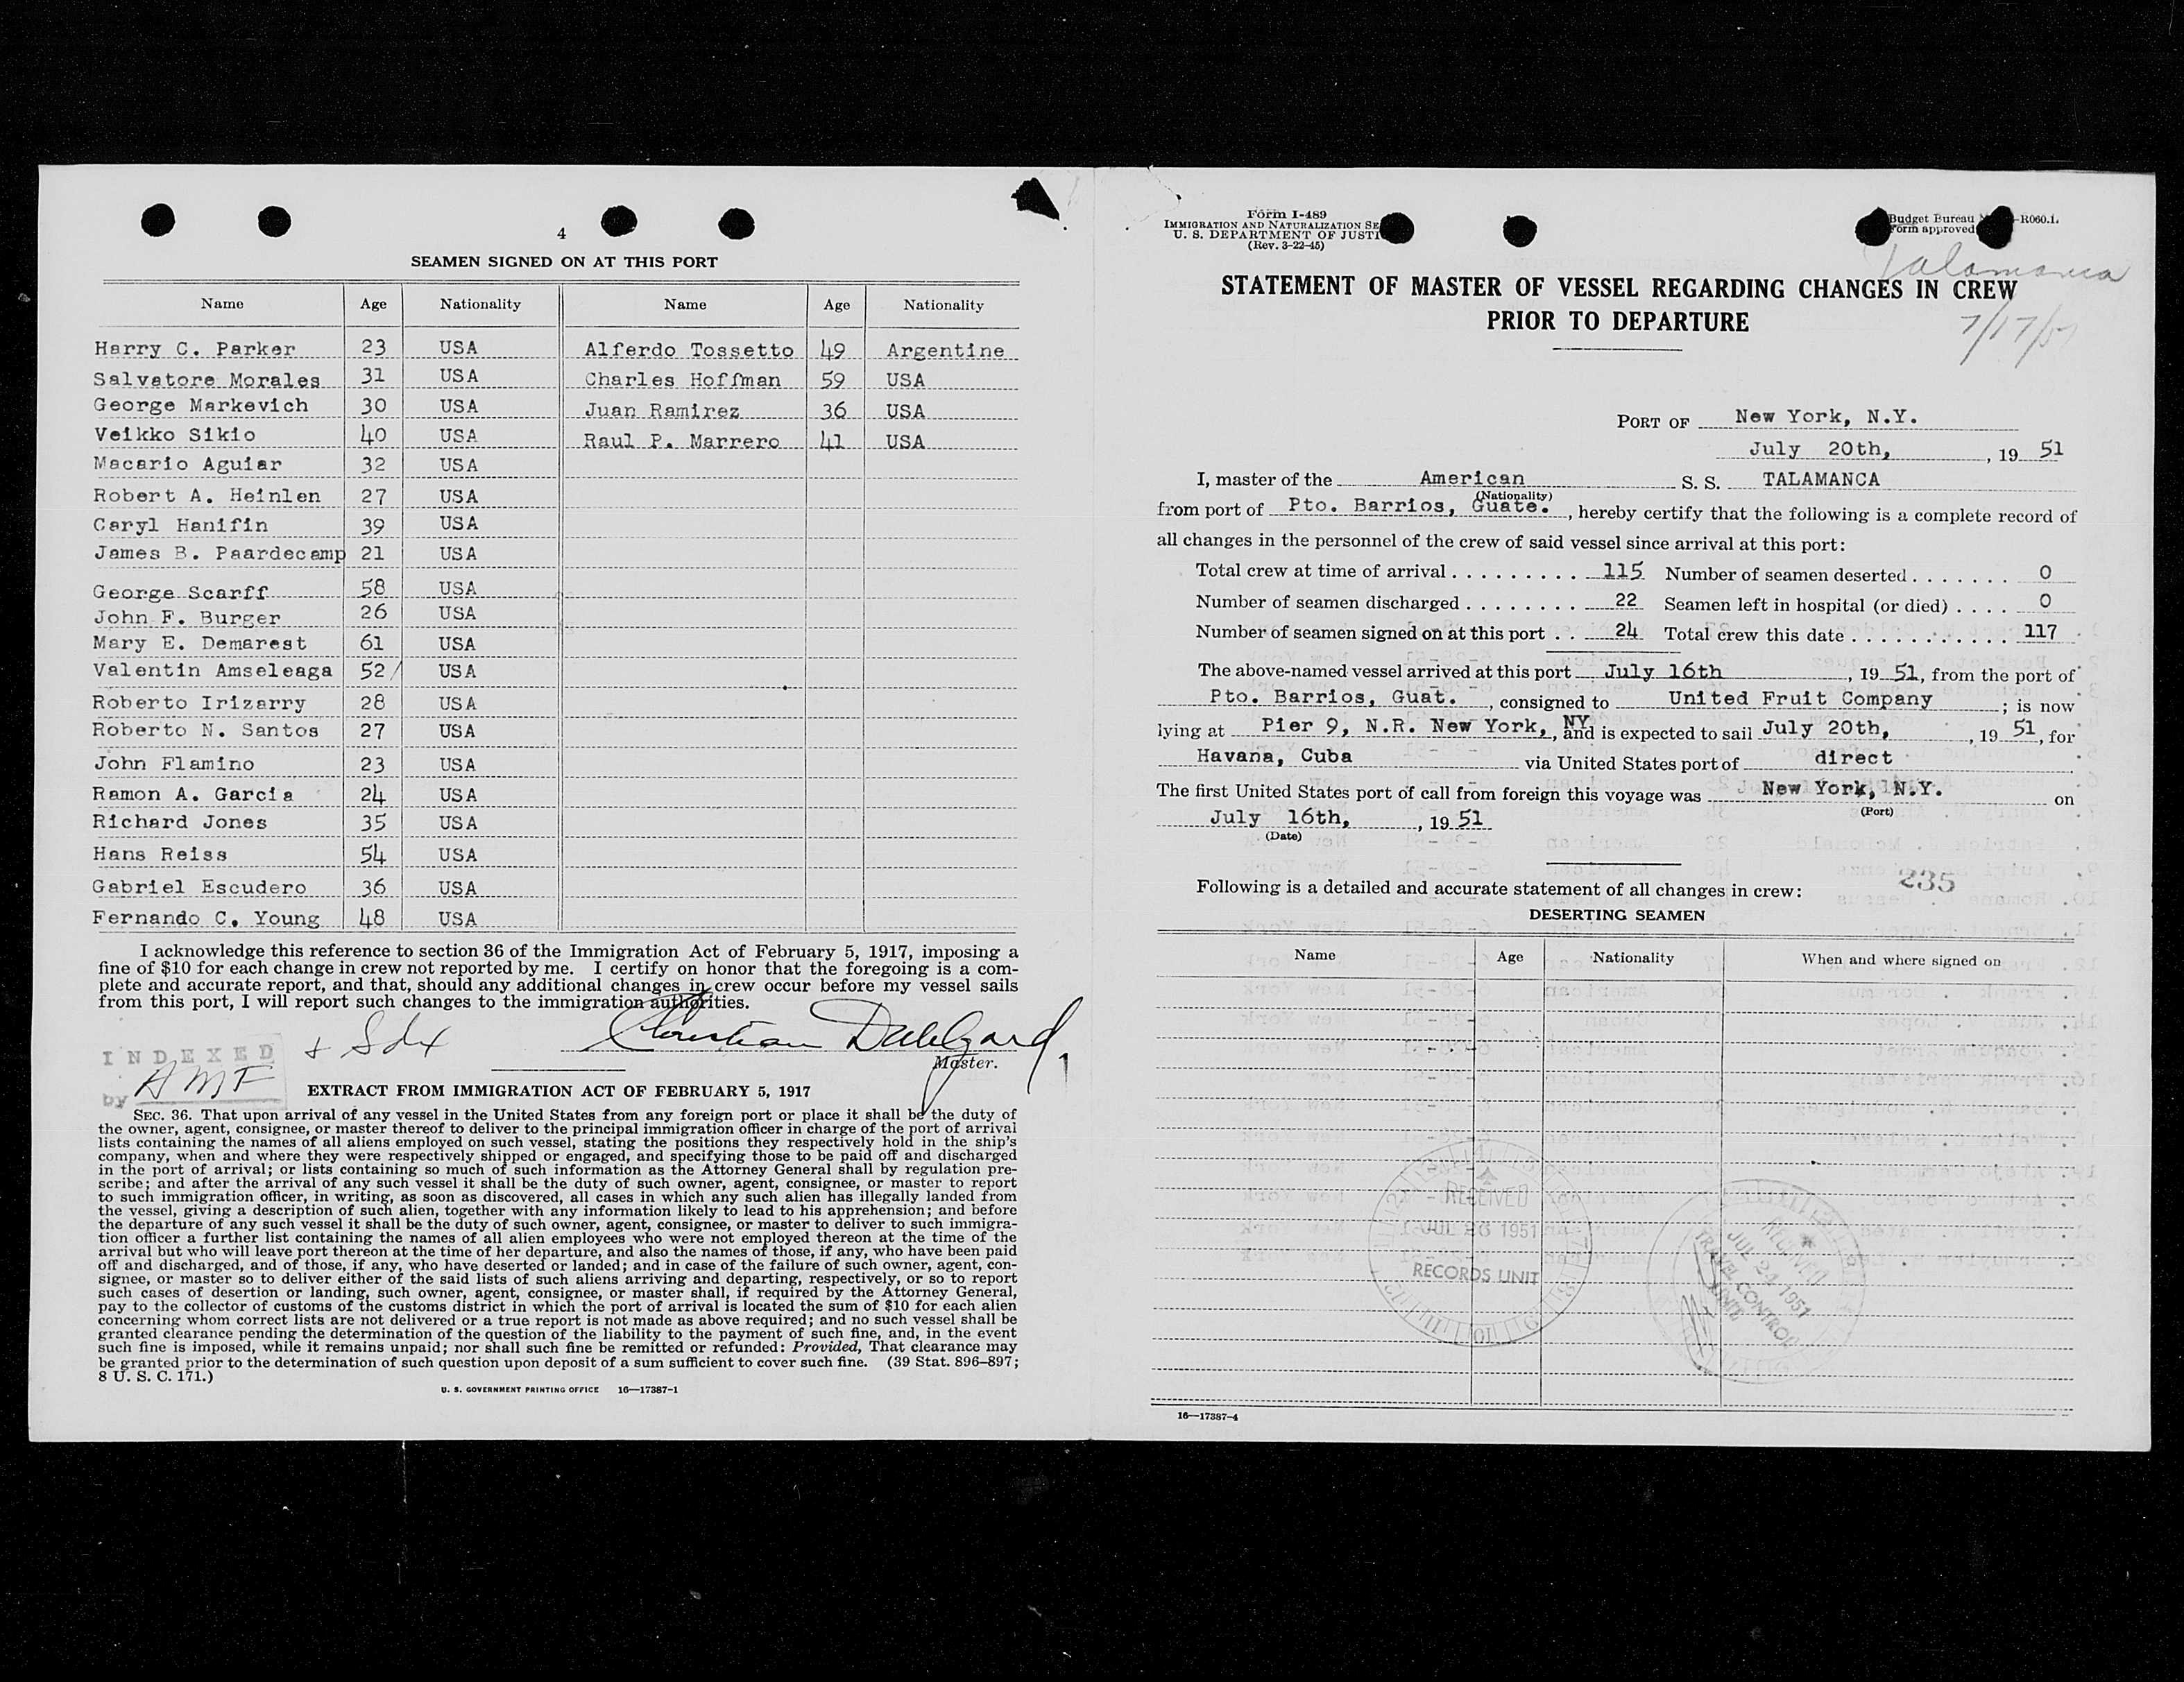 4
SEAMEN SIGNED ON AT THIS PORT
Name Age Nationality Name Age Nationality
Harry C. Parker 23 USA Alferdo Tossetto 49 Argentine
Salvatore Morales 31 USA Charles Hoffman 59 USA
George Markevich 30 USA Juan Ramirez 36 USA
Veikko Sikio 40 USA Raul P. Marrero 41 USA
Macario Aguiar 32 USA
Robert A. Heinlen 27 USA
Caryl Hanifin 39 USA
James B. Paardecamp 21 USA
George Scarff 58 USA
John F. Burger 26 USA
Mary E. Demarest 61 USA
Valentin Amseleaga 52/ USA
Roberto Irizarry 28 USA
Roberto N. Santos 27 USA
John Flamino 23 USA
Ramon A. Garcia 24 USA
Richard Jones 35 USA
Hans Reiss 54 USA
Gabriel Escudero 36 USA
Fernando C. Young 48 USA
I acknowledge this reference to section 36 of the Immigration Act of February 5, 1917, imposing a
fine of $10 for each change in crew not reported by me. I certify on honor that the foregoing is a com-
plete and accurate report, and that, should any additional changes in crew occur before my vessel sails
from this port, I will report such changes to the immigration authorities.
Christian Dahlgard
Master.
INDEXED
by AMF
EXTRACT FROM IMMIGRATION ACT OF FEBRUARY 5, 1917
SEC. 36. That upon arrival of any vessel in the United States from any foreign port or place it shall be the duty of
the owner, agent, consignee, or master thereof to deliver to the principal immigration officer in charge of the port of arrival
lists containing the names of all aliens employed on such vessel, stating the positions they respectively hold in the ship's
company, when and where they were respectively shipped or engaged, and specifying those to be paid off and discharged
in the port of arrival; or lists containing so much of such information as the Attorney General shall by regulation pre-
scribe; and after the arrival of any such vessel it shall be the duty of such owner, agent, consignee, or master to report
to such immigration officer, in writing, as soon as discovered, all cases in which any such alien has illegally landed from
the vessel, giving a description of such alien, together with any information likely to lead to his apprehension; and before
the departure of any such vessel it shall be the duty of such owner, agent, consignee, or master to deliver to such immigra-
tion officer a further list containing the names of all alien employees who were not employed thereon at the time of the
arrival but who will leave port thereon at the time of her departure, and also the names of those, if any, who have been paid
off and discharged, and of those, if any, who have deserted or landed; and in case of the failure of such owner, agent, con-
signee, or master so to deliver either of the said lists of such aliens arriving and departing, respectively, or so to report
such cases of desertion or landing, such owner, agent, consignee, or master shall, if required by the Attorney General,
pay to the collector of customs of the customs district in which the port of arrival is located the sum of $10 for each alien
concerning whom correct lists are not delivered or a true report is not made as above required; and no such vessel shall be
granted clearance pending the determination of the question of the liability to the payment of such fine, and, in the event
such fine is imposed, while it remains unpaid; nor shall such fine be remitted or refunded: Provided, That clearance may
be granted prior to the determination of such question upon deposit of a sum sufficient to cover such fine. (39 Stat. 896–897;
8 U. S. C. 171.)
U. S. GOVERNMENT PRINTING OFFICE 16—17387-1
Form I-489
IMMIGRATION AND NATURALIZATION SE
U. S. DEPARTMENT OF JUSTI
(Rev. 3-22-45)
Budget Bureau -R060.1.
Form approved
Talamanca
STATEMENT OF MASTER OF VESSEL REGARDING CHANGES IN CREW
PRIOR TO DEPARTURE
7/17/51
PORT OF New York, N.Y.
July 20th, , 19 51
I, master of the American S. S. TALAMANCA
(Nationality)
from port of Pto. Barrios, Guate. , hereby certify that the following is a complete record of
all changes in the personnel of the crew of said vessel since arrival at this port:
Total crew at time of arrival . . . . . . . . . . 115 Number of seamen deserted . . . . . . . 0
Number of seamen discharged . . . . . . . . 22 Seamen left in hospital (or died) . . . . 0
Number of seamen signed on at this port . . 24 Total crew this date . . . . . . . . . . . . 117
The above-named vessel arrived at this port July 16th , 19 51, from the port of
Pto. Barrios, Guat. , consigned to United Fruit Company ; is now
lying at Pier 9, N.R. New York, NY , and is expected to sail July 20th, , 19 51, for
Havana, Cuba via United States port of direct
The first United States port of call from foreign this voyage was New York, N.Y. on
(Port)
July 16th, , 19 51
(Date)
Following is a detailed and accurate statement of all changes in crew:
235
DESERTING SEAMEN
Name Age Nationality When and where signed on
RECEIVED
JUL 26 1951
RECORDS UNIT
RECEIVED
JUL 24 1951
TRAVEL CONTROL
UNIT
16—17387-4